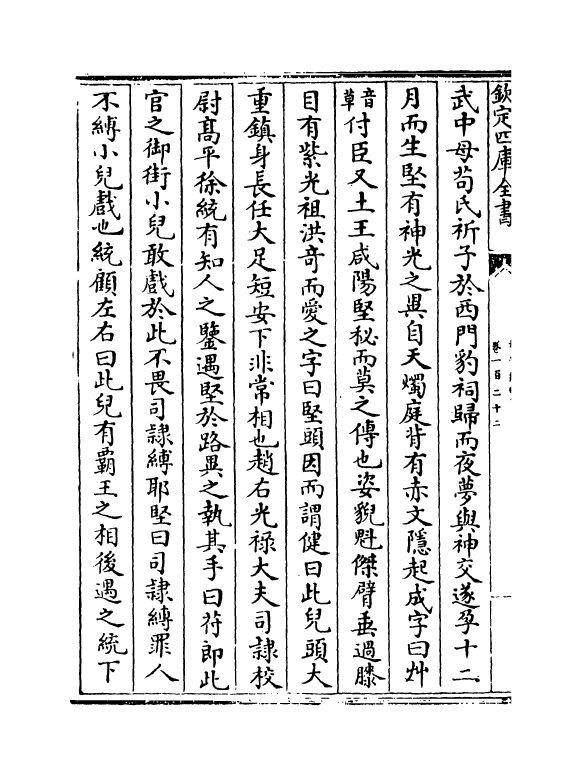 欽定四庫全書
卷一百二十二
武中母茍氏祈子於西門豹祠歸而夜夢與神交遂孕十二
月而生堅有神光之異自天燭庭背有赤文隱起成字曰艸
音草付臣又土王咸陽堅秘而莫之傳也姿貌魁傑臂垂過膝
目有紫光祖洪竒而愛之字曰堅頭因而謂健曰此兒頭大
重鎮身長任大足短安下非常相也趙右光祿大夫司隷校
尉髙平徐統有知人之鑒遇堅於路異之執其手曰苻郎此
官之御街小兒敢戲於此不畏司隷縛耶堅曰司隷縛罪人
不縛小兒戲也統顧左右曰此兒有霸王之相後遇之統下